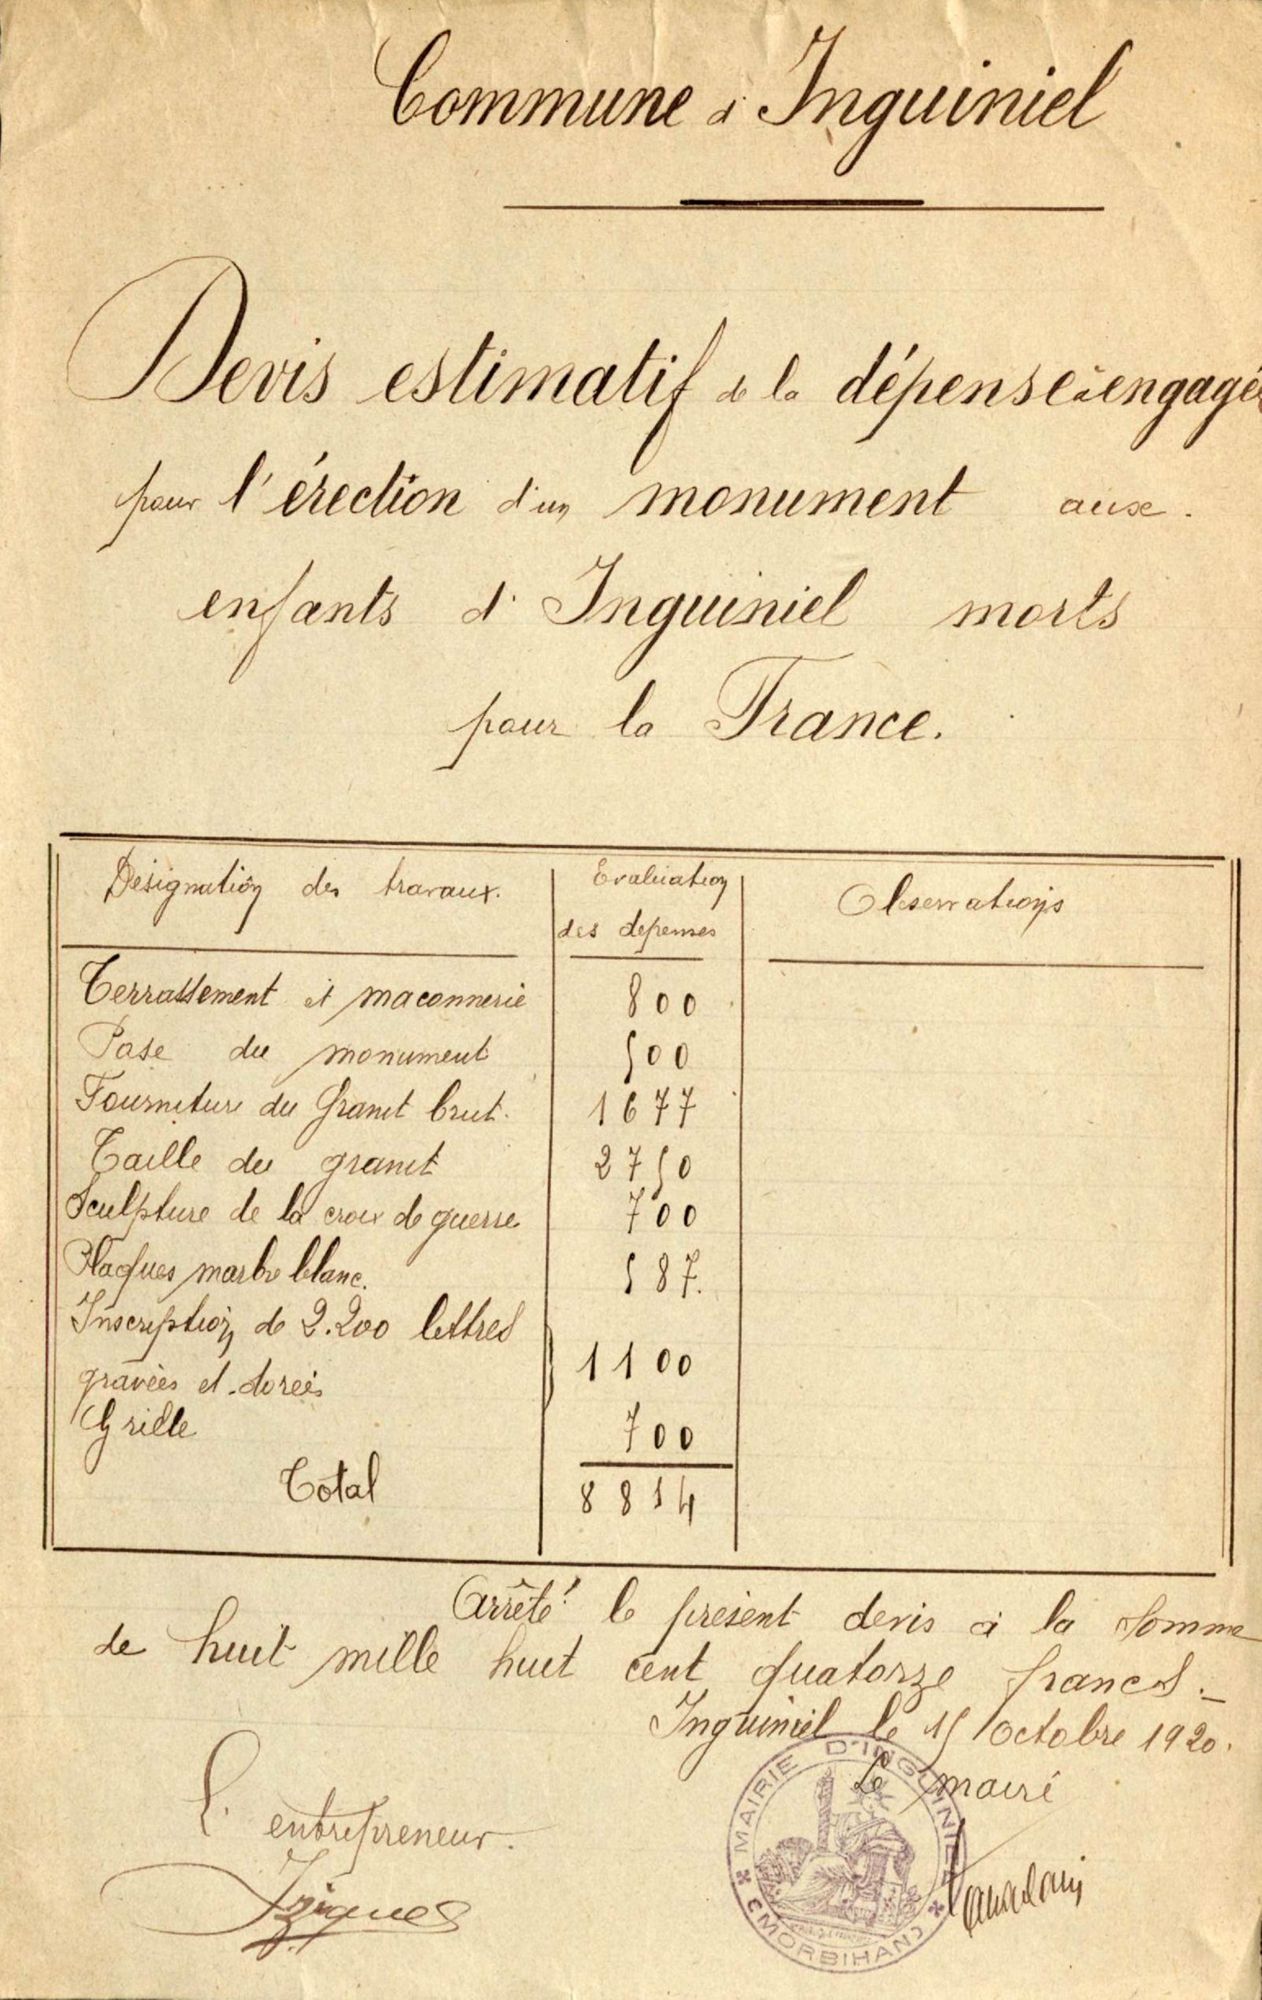 Commune d'Inguiniel
Devis estimatif de la dépense à engager
pour l'érection d'un monument aux
enfants d'Inguiniel morts
pour la France.
Désignation des travaux.
Evaluation
des depenses
Observations
Terrassement et maconnerie 800
Pose du monument 500
Fourniture du Granit brut. 1677
Taille du granit 2750
Sculpture de la croix de guerre 700
Plaques marbre blanc. 587.
Inscription de 2.200 lettres
gravées et dorées 1100
Grille 700
Total 8814
Arrêté le présent devis à la somme
de huit mille huit cent quatorze francs.
Inguiniel le 15 Octobre 1920.
Le maire
L'entrepreneur.
MAIRIE D'INGUINIEL
(MORBIHAN)